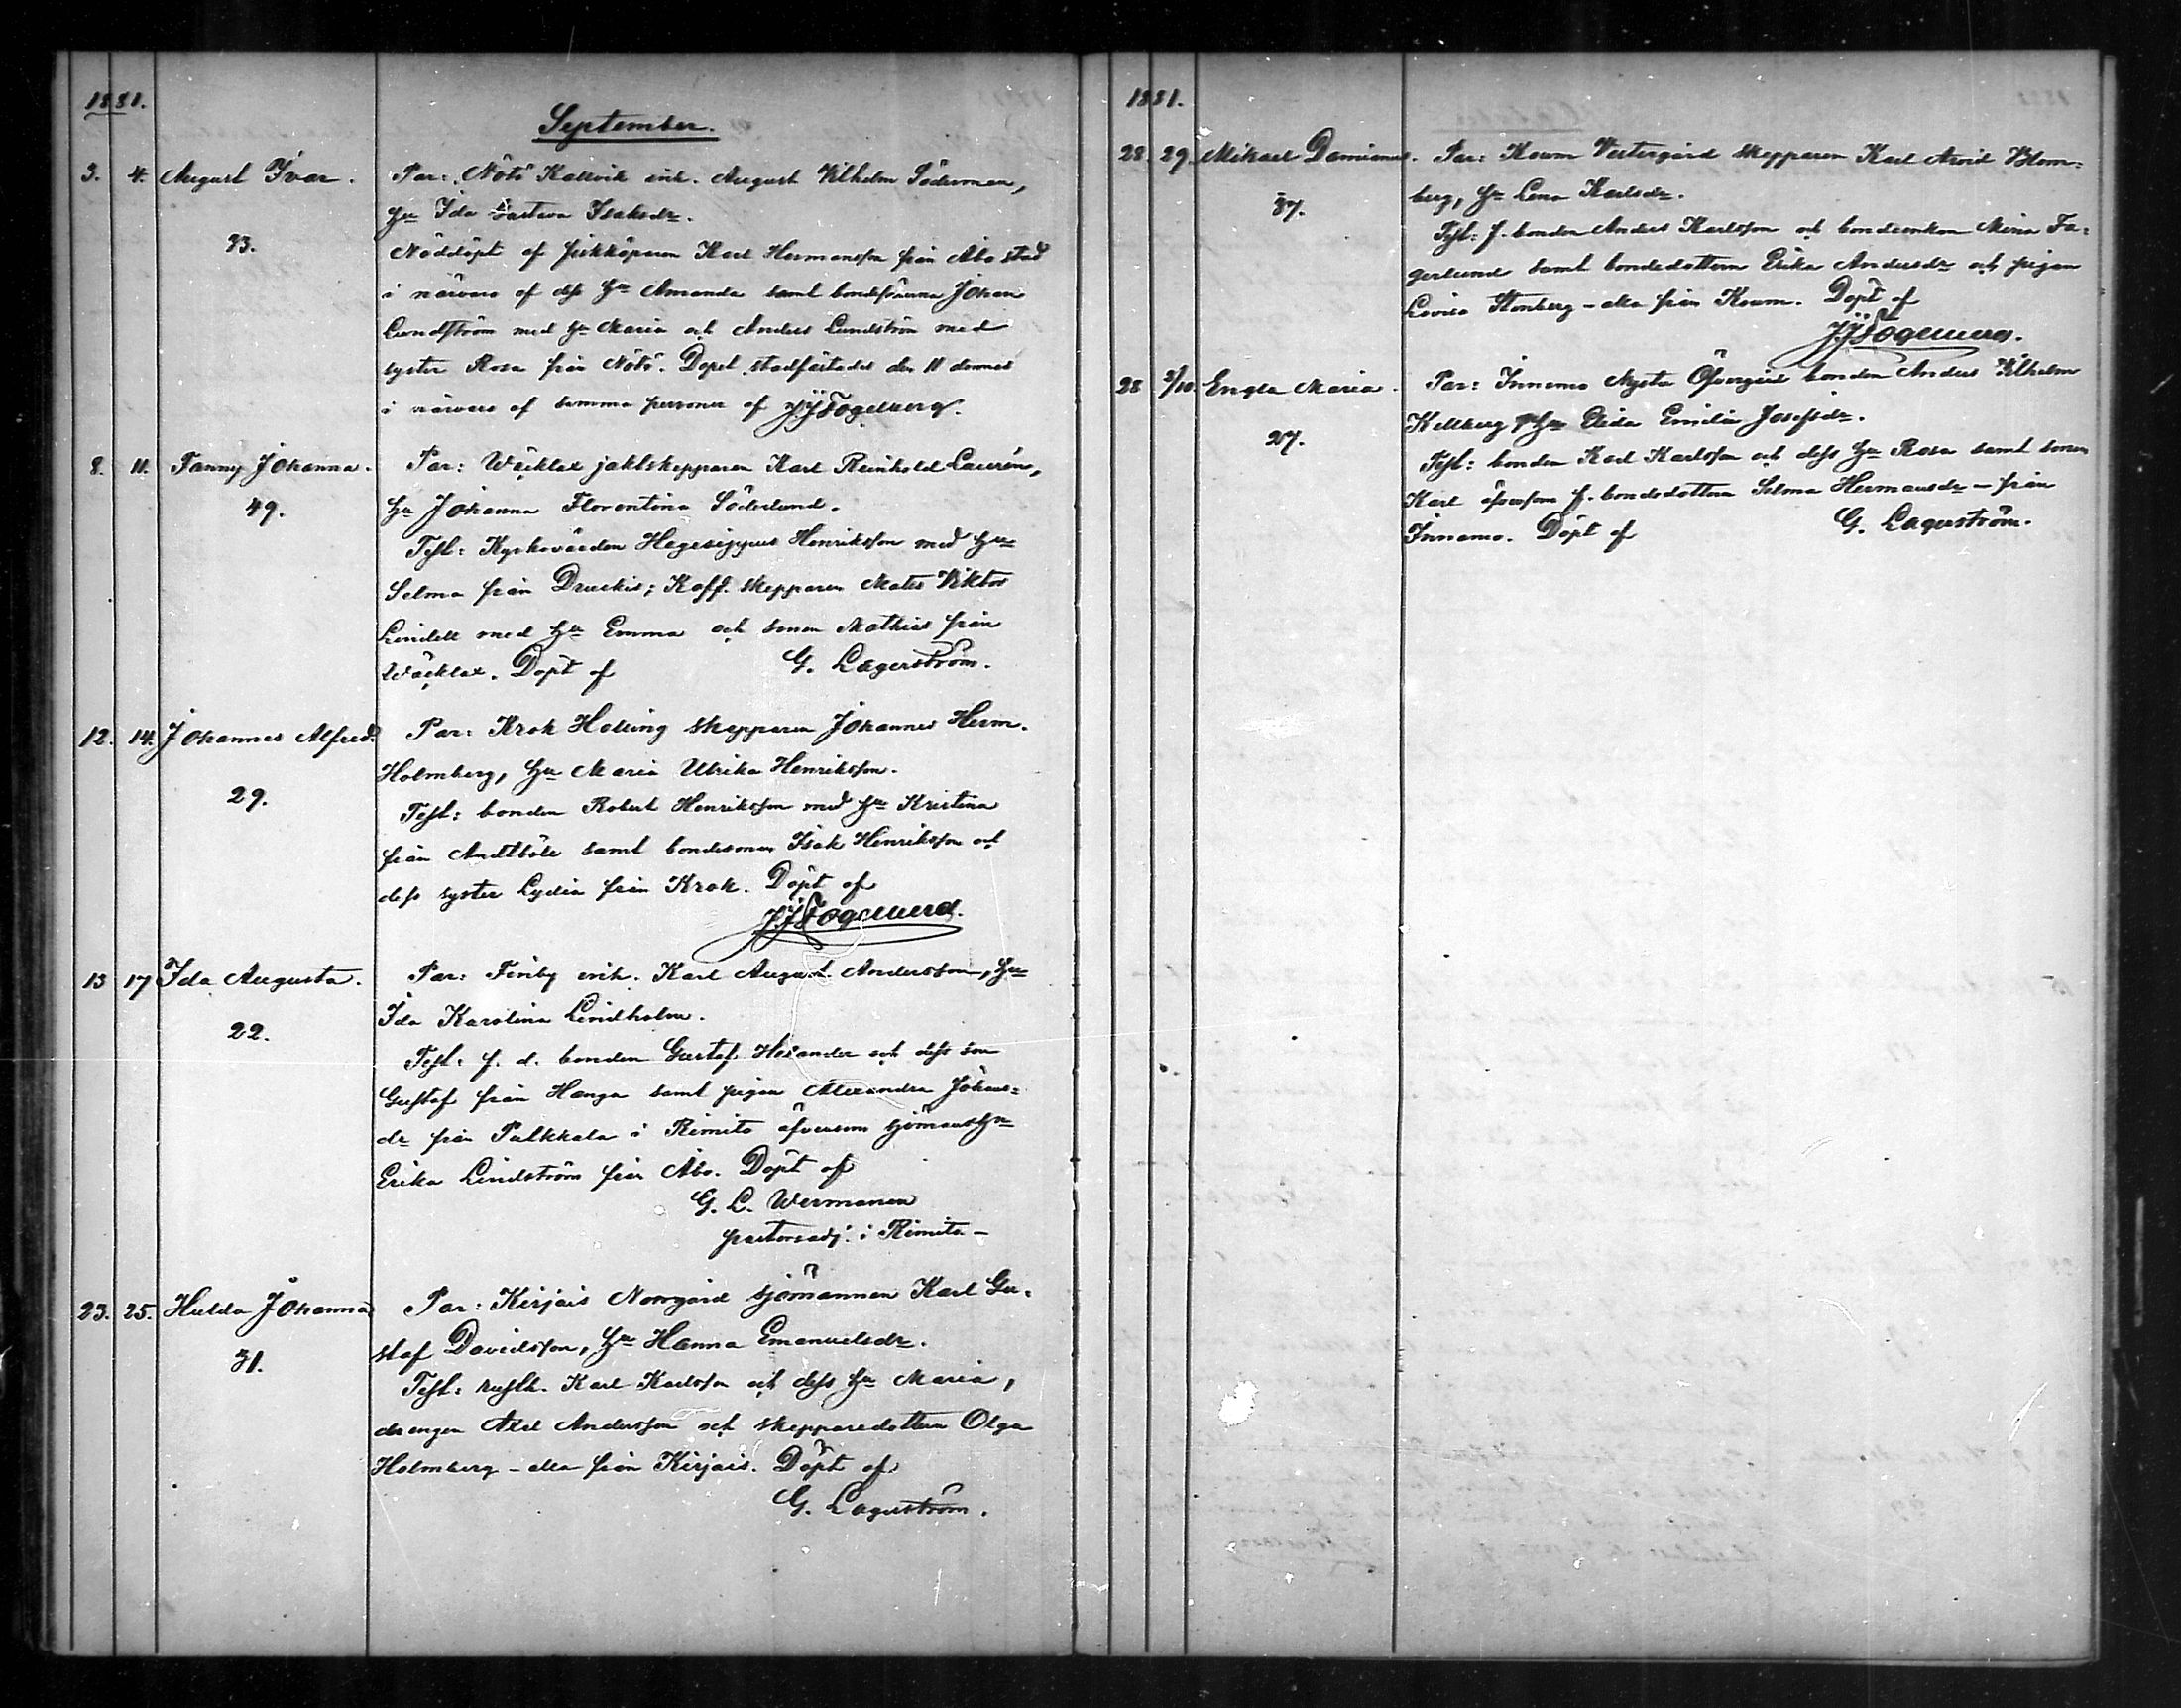 1881.
September.
3. 4. August Ivar.
23.
Par: Nötö Kallvik inh. August Vilhelm Söderman,
hu Ida Gustava Isaksdr.
Nöddöpt af fiskköparen Karl Hermansson från Åbo stad
i närvaro af dess hu Amanda samt bondesönerna Johan
Lundström med hu Maria och Anders Lundström med
syster Rosa från Nötö. Dopet stadfästades den 11 dennes
i närvaro af samma personer af JJFogelberg.
8. 11. Fanny Johanna.
49.
Par: Wäcklax jaktskepparen Karl Reinhold Laurén,
hu Johanna Florentina Söderlund.
Test: Kyrkovärden Hegesippus Henriksson med hu
Selma från Druckis; Koff. skepparen Mats Viktor
Lindell med hu Emma och sonen Mathias från
Wäcklax. Döpt af G. Lagerström.
12. 14. Johannes Alfred.
29.
Par: Krok Holling skepparen Johannes Herm.
Holmberg, hu Maria Ulrika Henriksson.
Test: bonden Robert Henriksson med hu Kristina
från Andtböle samt bondesonen Isak Henriksson och
dess syster Lydia från Krok. Döpt af
JJFogelberg.
13 17 Ida Augusta.
22.
Par: Finby inh. Karl August Andersson, hu
Ida Karolina Lindholm.
Test: f. d. bonden Gustaf Helander och dess son
Gustaf från Hanga samt pigan Alexandra Johans-
dr från Pulkkala i Rimito äfvensom sjömanshu
Erika Lindström från Åbo. Döpt af
G. L. Wermanen
pastorsadj. i Rimito -
23. 25. Hulda Johanna
31.
Par: Kirjais Norrgård sjömannen Karl Gu-
staf Davidsson, hu Hanna Emanuelsdr.
Test: rusth. Karl Karlsson och dess hu Maria,
drengen Axel Andersson och skepparedottern Olga
Holmberg - alla från Kirjais. Döpt af
G. Lagerström.
1881.
28. 29. Mikael Damianus.
37.
Par: Koum Vestergård skepparen Karl Arvid Blom-
berg, hu Lena Karlsdr.
Test: f. bonden Anders Karlsson och bondeenkan Mina Fa-
gerlund samt bondedottern Erika Andersdr och pigan
Lovisa Stenberg - alla från Koum. Döpt af
JJFogelberg.
28 2/10. Engla Maria.
27.
Par: Innamo Nystu Öfvergård bonden Anders Vilhelm
Kellberg hu Elida Emilia Josefsdr.
Test: bonden Karl Karlsson och dess hu Rosa samt sonen
Karl äfvensom f. bondedottern Selma Hermansdr - från
Innamo. Döpt af G. Lagerström.